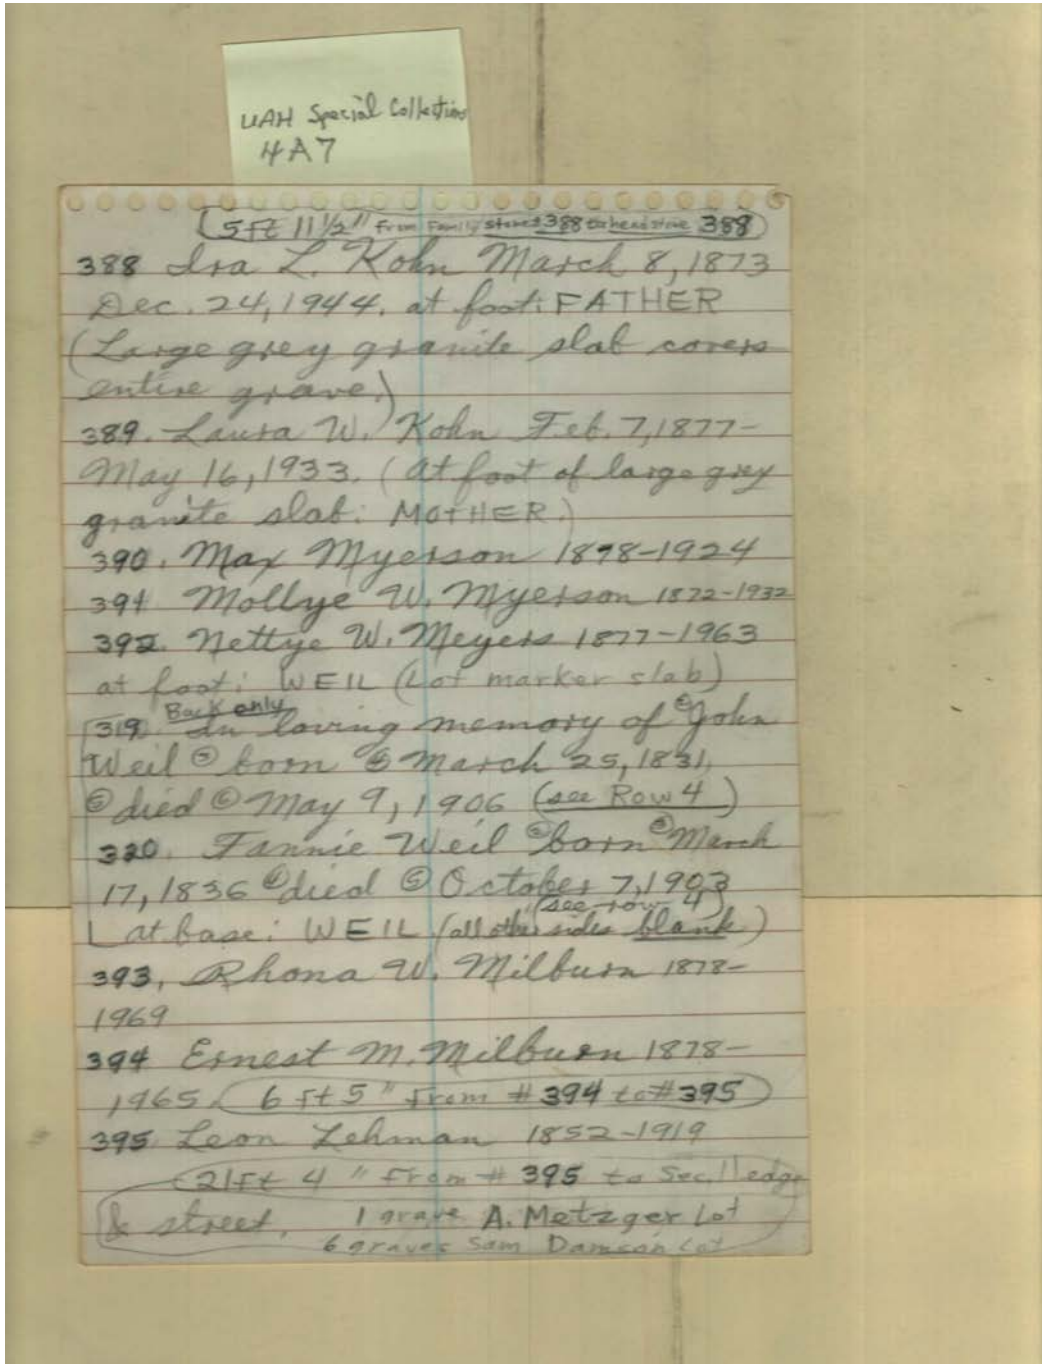 UAH Special Collections
4A7
5ft 11 1/2" From Family stone 388 to headstone 388
388 Ira L. Kohn March 8, 1873
Dec. 24, 1944. at foot: FATHER
(Large grey granite slab covers
entire grave.)
389. Laura W. Kohn Feb. 7, 1877-
May 16, 1933. (At foot of large grey
granite slab: MOTHER.)
390. Max Myerson 1878-1924
391 Mollye W. Myerson 1872-1932
392. Nettye W. Meyers 1877-1963
at foot: WEIL (Lot marker slab)
Back only
319. In loving memory of © John
Weil © born © March 25, 1831,
© died © May 9, 1906 (see Row 4)
320. Fannie Weil © born © March
17, 1836 © died © October 7, 1903
(see row 4)
at base: WEIL (all other sides blank)
393. Rhona W. Milburn 1878-
1969
394 Ernest M. Milburn 1878-
1965. 6 ft 5" From # 394 to # 395
395. Leon Lehman 1852-1919
21ft 4" From # 395 to Sec. 11 edge
& street. 1 grave A. Metzger Lot
6 graves Sam Damson Lot